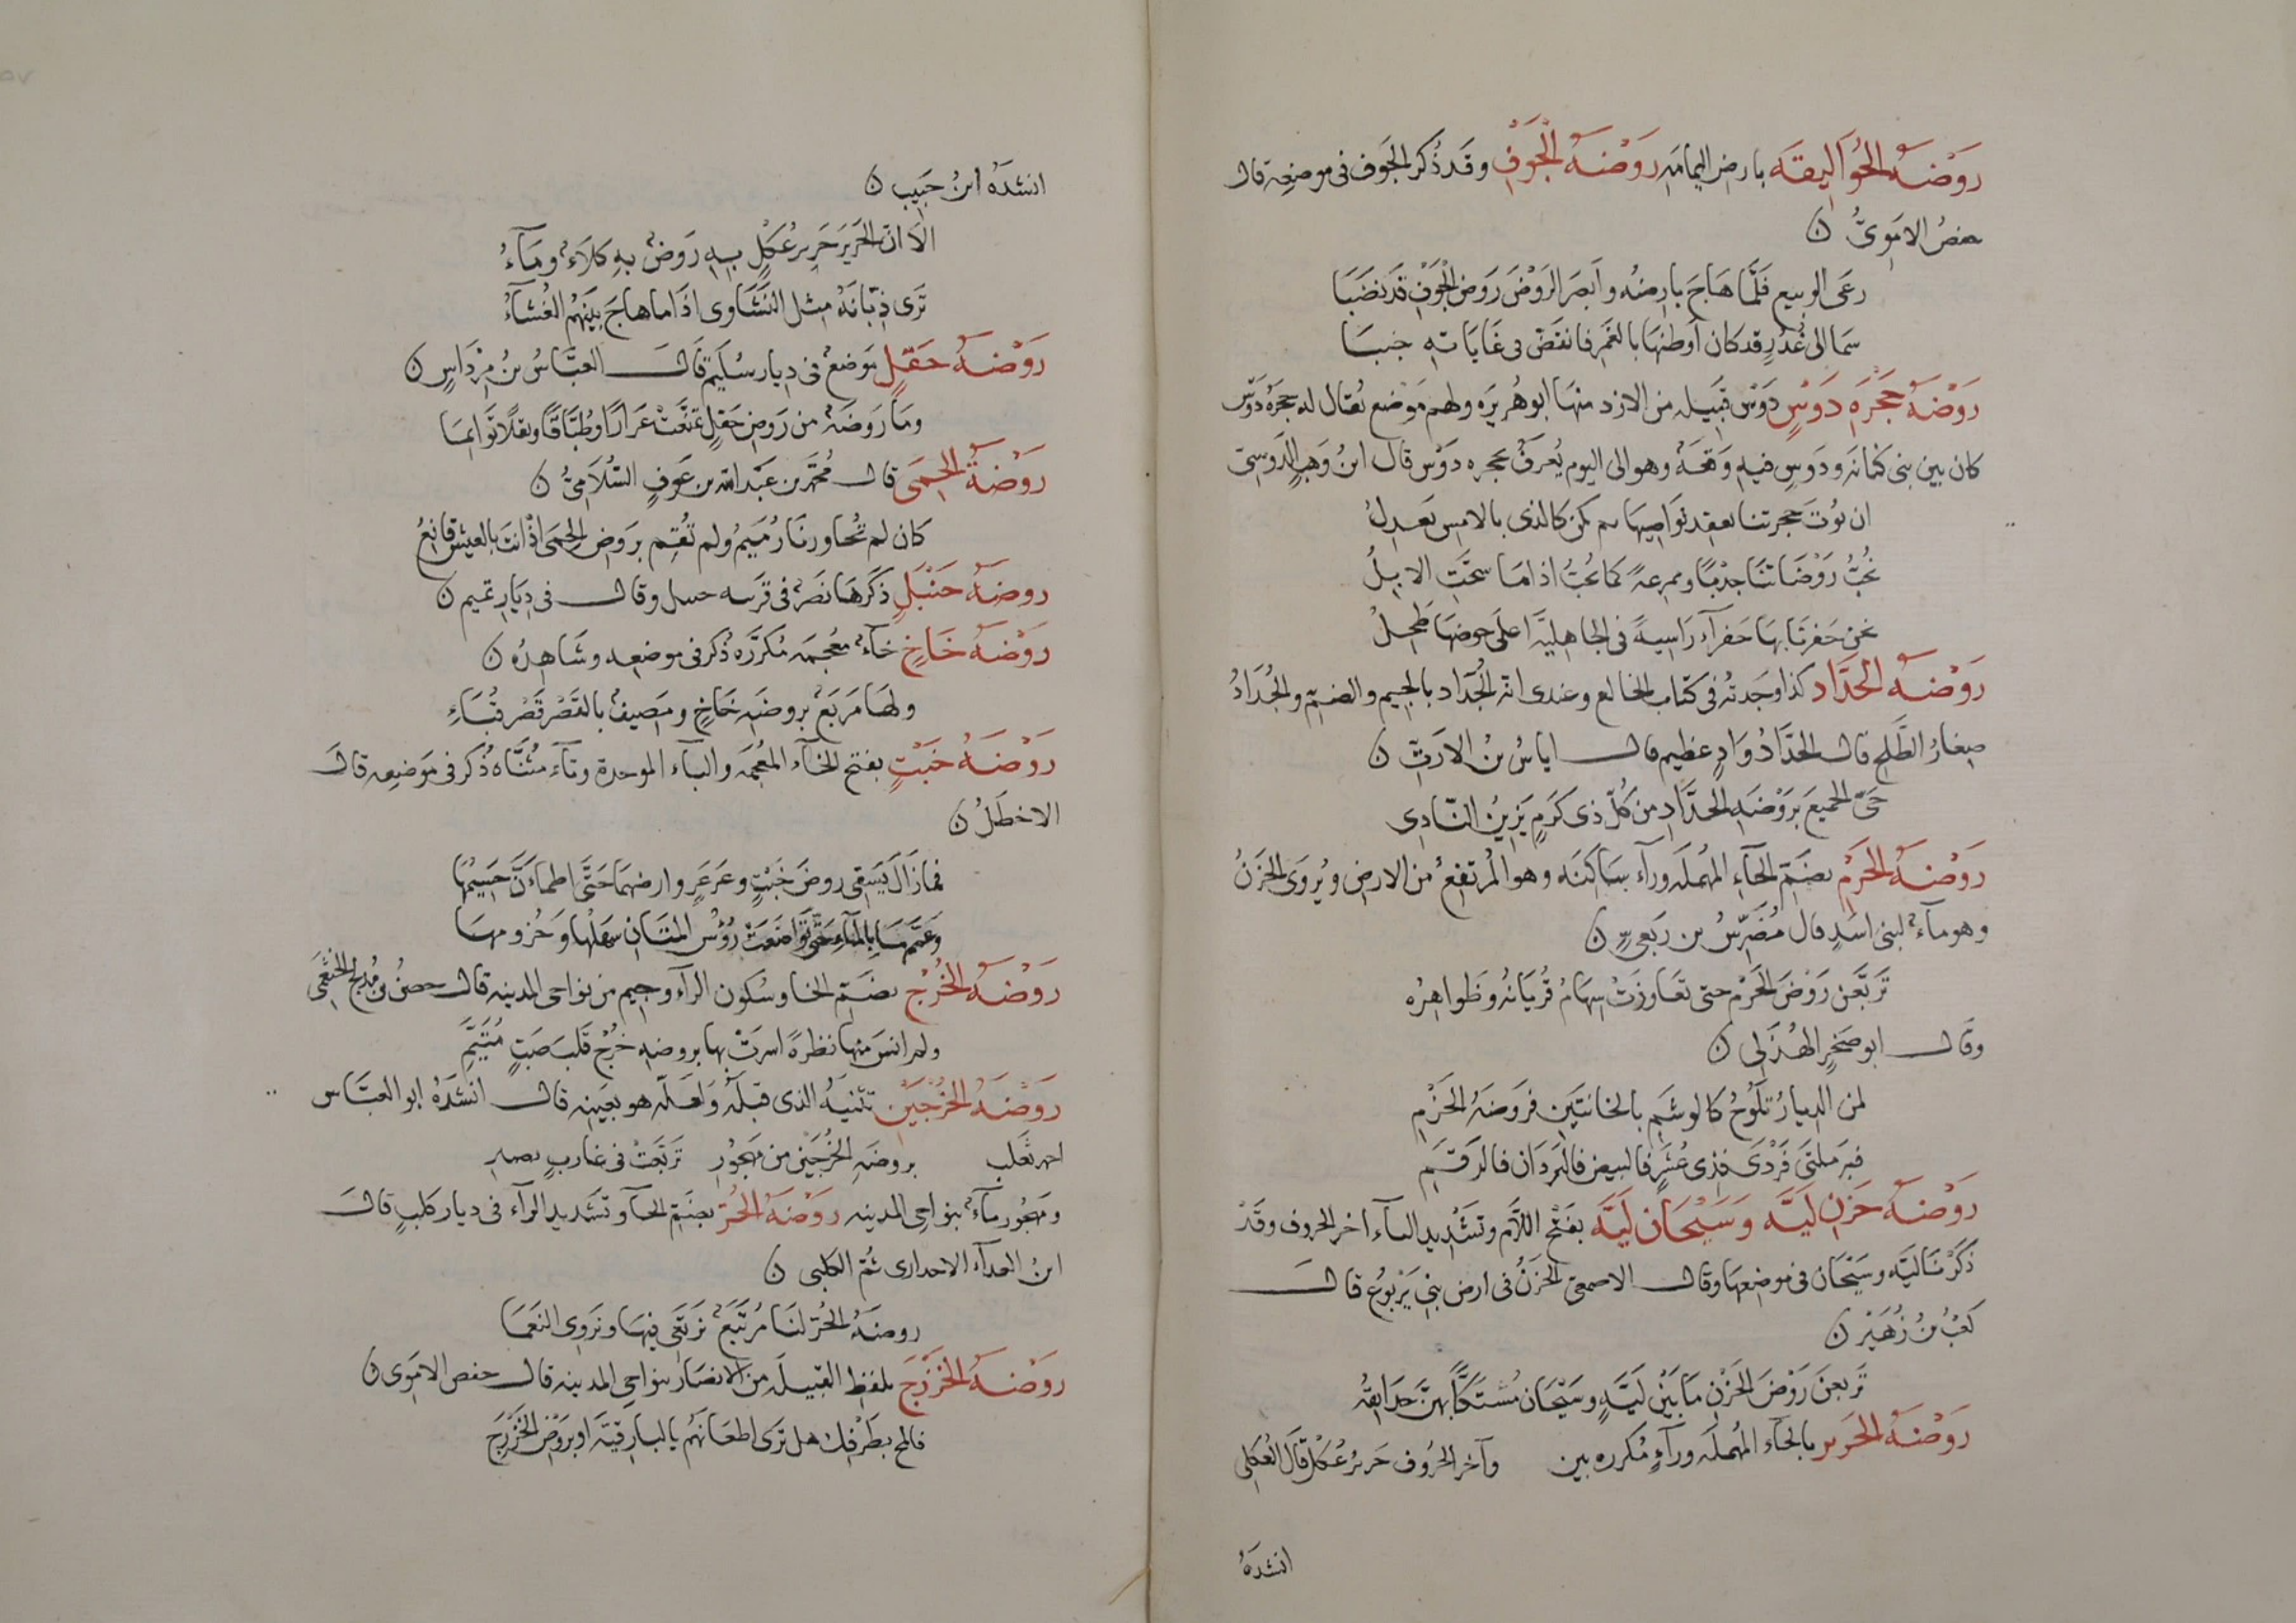 رَوْضَةُ الحُوَّالِيقَه بارض اليمامَه رَوْضَةُ الجَوْفِ وقَد ذُكر الجَوف فى موضعِه قال
حفصُ الامَوىُّ ن
رعَى الربيع فَلَمَّا هَاجَ بارِضُه وابَصَر الرَوْضَ رَوضَ الجَوْفِ قَد نَضَبَا
سَمَا الى غُدُرٍ قد كان أوطنهَا بالغَمْر فانقضّ فى غَايَاتِه خببَا
رَوْضَةُ حَجْرَه دَوْسٍ دَوْس قبيله من الازد منهَا ابو هُريَره ولهم مَوْضع يُقال له حَجْرَهُ دَوْسٍ
كان بين بنى كنانَه ودَوسٍ فيهِ وَقعَةٌ وهو الى اليوم يُعرَفُ بحجره دَوْس قال ابنُ وَهبٍ الدَوسىّ
ان نُوتَ حجرتنا نعقِد نَواصِيهَا نكن كالذى بالامسِ نَعدِلُ
نُحِبُّ رَوْضَاتنَا جدْبًا وممرعةً كما تُحبُّ اذا مَا سحَتِ الابِلُ
نحنُ حَفرنَا بهَا حَفرآء رَاسيةً فى الجاهليَّه اعلَى حوضهَا طَحِلُ
رَوْضَةُ الحَدَّاد كذا وجَدتُه فى كتاب الخالع وعندى انه الجُدَّاد بالجيم والضمّ والجُدَّادُ
صِغارُ الطَّلحِ قال الحَدَّادُ وَادٍ عظيم قال اياسُ بنُ الارَتّ ن
حَىِّ الجميعَ برَوْضَهِ الحَدَّادِ من كُلّ ذى كَرَمٍ يَزِينُ النّادِى
رَوْضَةُ الحُزْمِ بضَمّ الحَاءِ المهُملَه وزآء سَاكنَه وهو المُرتفِعُ من الارض ويُروَى الحَزْنُ
وهو مآءٌ لبنى اسَدٍ قال مُضَرِّسُ بن رَبَعىٍّ ن
تَربَّعن رَوْضَ الحَزْمِ حتى تعَاوَرَتْ سِهَامُ قُريَانُه وظَواهِرُه
وقال ابو صَخرٍ الهُذَلى ن
لمن الديارُ تلَوُحُ كالوشَمِ بالخَانتَين فرَوضةُ الحَزْمِ
فبرَملَتَى فَردَى فذِى عُشَرٍ فالبيض فالبَردَان فالرَقَمِ
رَوْضَةُ حَزنِ لَيَّه وَسَيْحَان لَيَّه بفَتح اللاَّم وتشَديد اليآء آخر الحروف وقَدْ
ذكَرْنا لَيَّه وسَيْحَان فى موضعهَا وقال الاصمعى الحَزنُ فى ارض بنى يَرْبوُع قال
كعْبُ بنُ زُهَيْر ن
تَربعن رَوْضَ الحَزْن مَا بَيْنَ لَيَّهٍ وسَيْحَان مُستَكًّا بهنَّ حَدايقُه
رَوْضَةُ الحَرير بالحَآء المهُملَه ورآءٍ مُكرره بين وآخر الحُروف حَريرُ عُكلٍ قَال العُكلى
انشَدَهُ
انشَدَهُ ابنُ حَبيب ن
الا انَّ الحَرَيَر حَريرَ عُكلٍ بِهِ رَوضٌ بهِ كلأٌ ومَآءُ
تَرى ذِبّانَهُ مِثل النَشَاوى اذَا ما هاجَ بينَهُم الغُشآءُ
رَوْضَةُ حَقلٍ مَوضعٌ فى ديار سُلَيم قَالَ العبَّاسُ بنُ مِرْدَاسٍ ن
ومَا رَوضَةٌ من رَوضِ حَقلٍ تمَتَّعَتْ عَرارًا وطُبَّاقًا وبقلًا تَوَايمَا
رَوْضَةُ الحِمَى قال مُحَمّد بن عَبْدالله بن عَوفٍ السَّلَامِىُّ ن
كان لم تُجاورنَا رُمَيمُ ولم تُقِم برَوض الحِمَى اذْ انتَ بالعيش قانِعُ
روضَةُ حَنبَلٍ ذكرَهَا نَصْرٌ فى قرنه حنبل وقال فى دِيَار تميم ن
رَوْضَةُ خَاخٍ خآءٌ معُجمَه مُكرَّرَه ذُكر فى موضعِه وشَاهِدُه ن
ولهَا مَربَعٌ بروضَهِ خَاخٍ ومَصِيفٌ بالقَصْر قَصْر قُبَاءِ
رَوْضَةُ خَبْتٍ بفتح الخَآء المعُجمَه والبآء الموحدة وتآء مُثنَّاه ذُكرَ فى مَوضعِه قالَ
الاخطَلُ ن
فمازَالَ يَسْقِى روضَ خَبْتٍ وعَرعَرٍ وارضهمَا حَتَّى اطمأنَّ جَسيمُها
وعَمَّمهَا بالمآءِ حتّى تَواضَعَتْ رُؤسُ المتَانِ سَهلُها وحُزومهَا
رَوْضَةُ الخُرْجِ بضَمّ الخا وسُكون الرآء وجيم من نواحى المدينه قال حصنُ بن مُدلجٍ الخثعَمى
ولم انسَ منهَا نظرةً اسرَتْ بها بروضهِ خُرْجٍ قَلبَ صَبٍّ مُتَيَّمِ
رَوْضَةُ الخُرْجَيْن تثنيَهُ الذى قبلَهُ وَلعَلّه هو بعَينِه قال انشَدَهُ ابو العبَّاس
احمد ثَعلَب بروضَهِ الخُرْجَيْنِ من مَهجُورِ تَربَّعَتْ فى عَازبٍ نضيرِ
ومَهجُور مآءٌ بنواحى المدينه رَوْضَةُ الحُرّ بضَمّ الحا وتشَديد الرآء فى ديار كلبٍ قالَ
ابنُ العدآء الاجدارى ثُمَّ الكلبى ن
روضَةُ الحُرّ لنَا مُرْتَبَعٌ نَرتَعى فيهَا ونَروِى النَعمَا
رَوْضَةُ الخَزْرَجَ بلفظِ القبيلَه من الانصَار بنواحى المدينه قال حفص الامَوى ن
فالمح بطَرْفِك هل تَرى اظعَانَهُم بالبارقيَّه او برَوْضِ الخَزْرَجِ